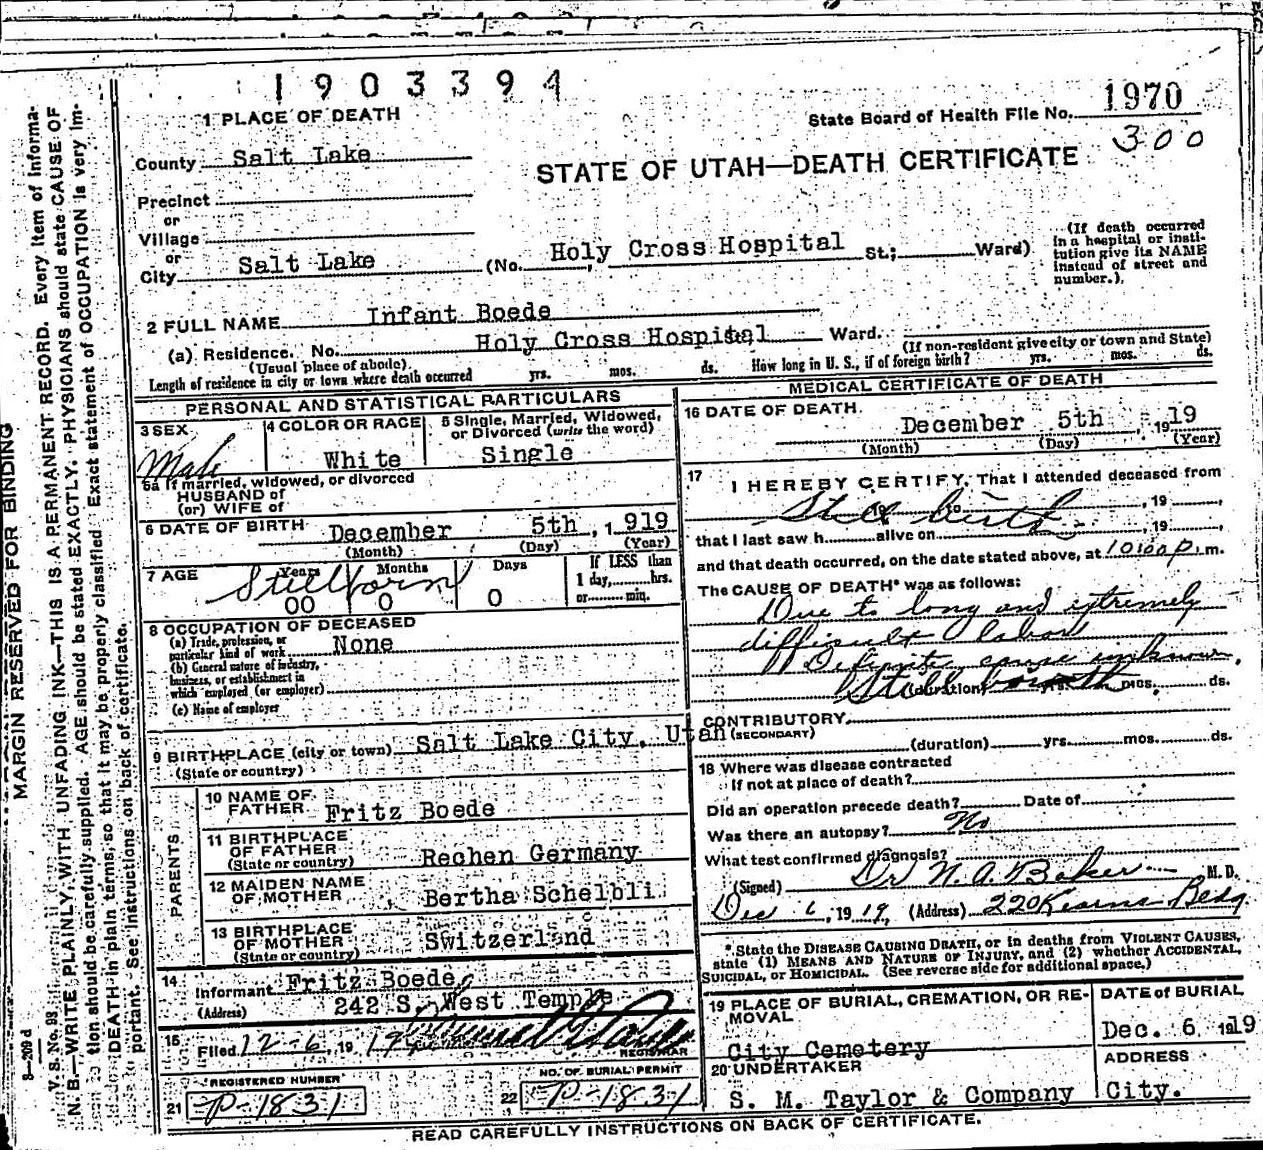 1903394
1 PLACE OF DEATH
State Board of Health File No. 1970
300
County Salt Lake
STATE OF UTAH—DEATH CERTIFICATE
Precinct
or
Village
or
City Salt Lake (No. Holy Cross Hospital St.; Ward)
(If death occurred
in a hospital or insti-
tution give its NAME
instead of street and
number.)
2 FULL NAME Infant Boede
(a) Residence. No. Holy Cross Hospital Ward.
(Usual place of abode). (If non-resident give city or town and State)
Length of residence in city or town where death occurred yrs. mos. ds. How long in U. S., if of foreign birth? yrs. mos. ds.
PERSONAL AND STATISTICAL PARTICULARS
3 SEX
Male
4 COLOR OR RACE
White
5 Single, Married, Widowed,
or Divorced (write the word)
Single
5a If married, widowed, or divorced
HUSBAND of
(or) WIFE of
6 DATE OF BIRTH December 5th, 1919
(Month) (Day) (Year)
7 AGE Years Months Days If LESS than
Stillborn 1 day, hrs.
00 0 0 or min.
8 OCCUPATION OF DECEASED
(a) Trade, profession, or
particular kind of work None
(b) General nature of industry,
business, or establishment in
which employed (or employer)
(c) Name of employer
9 BIRTHPLACE (city or town) Salt Lake City, Utah
(State or country)
PARENTS
10 NAME OF
FATHER Fritz Boede
11 BIRTHPLACE
OF FATHER
(State or country) Rechen Germany
12 MAIDEN NAME
OF MOTHER Bertha Schelbli
13 BIRTHPLACE
OF MOTHER
(State or country) Switzerland
14
Informant Fritz Boede
(Address) 242 S. West Temple
15
Filed 12-6, 19 19
REGISTRAR
REGISTERED NUMBER
21 P-1831
NO. OF BURIAL PERMIT
22 P-1831
MEDICAL CERTIFICATE OF DEATH
16 DATE OF DEATH
December 5th, 1919
(Month) (Day) (Year)
17 I HEREBY CERTIFY, That I attended deceased from
Still birth , 19 ,
that I last saw h alive on , 19 ,
and that death occurred, on the date stated above, at 10:00 P. m.
The CAUSE OF DEATH* was as follows:
Due to long and extremely
difficult labor
Definite cause unknown.
Still birth
(duration) yrs. mos. ds.
CONTRIBUTORY
(SECONDARY)
(duration) yrs. mos. ds.
18 Where was disease contracted
if not at place of death?
Did an operation precede death? Date of
Was there an autopsy? No
What test confirmed diagnosis?
(Signed) Dr N. A. Baker M. D.
Dec 6, 1919, (Address) 220 Kearns Bldg
*State the DISEASE CAUSING DEATH, or in deaths from VIOLENT CAUSES,
state (1) MEANS AND NATURE OF INJURY, and (2) whether ACCIDENTAL,
SUICIDAL, or HOMICIDAL. (See reverse side for additional space.)
19 PLACE OF BURIAL, CREMATION, OR RE-
MOVAL
City Cemetery
DATE of BURIAL
Dec. 6 1919
20 UNDERTAKER
S. M. Taylor & Company
ADDRESS
City.
READ CAREFULLY INSTRUCTIONS ON BACK OF CERTIFICATE.
MARGIN RESERVED FOR BINDING
S—209 d
V. S. No. 93.
N. B.—WRITE PLAINLY, WITH UNFADING INK—THIS IS A PERMANENT RECORD. Every item of informa-
tion should be carefully supplied. AGE should be stated EXACTLY. PHYSICIANS should state CAUSE OF
DEATH in plain terms, so that it may be properly classified. Exact statement of OCCUPATION is very im-
portant. See instructions on back of certificate.